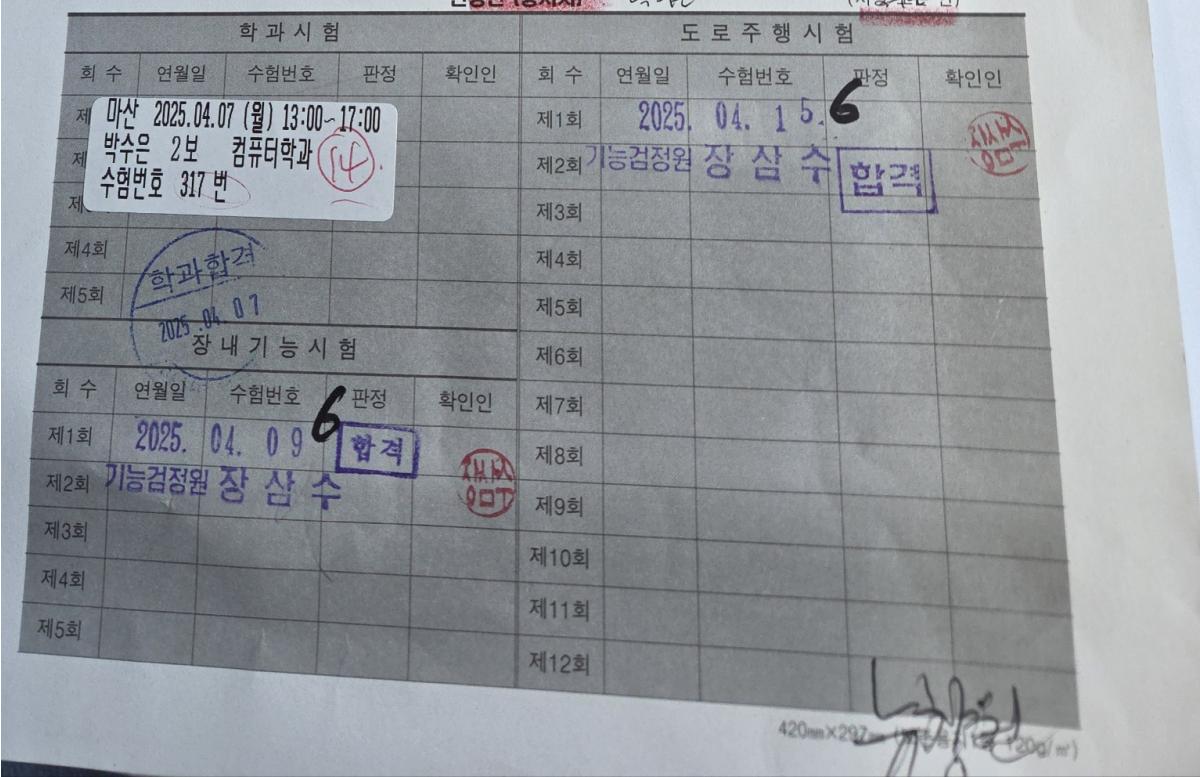 학과시험
회 수 연월일 수험번호 판정 확인인
마산 2025.04.07 (월) 13:00~17:00
박수은 2보 컴퓨터학과 14
수험번호 317 번
제4회
제5회
학과합격
2025.04.07
장내기능시험
회 수 연월일 수험번호 판정 확인인
제1회 2025. 04. 09 6 합격
제2회 기능검정원 장삼수
제3회
제4회
제5회
도로주행시험
회 수 연월일 수험번호 판정 확인인
제1회 2025. 04. 15. 6
제2회 기능검정원 장삼수 합격
제3회
제4회
제5회
제6회
제7회
제8회
제9회
제10회
제11회
제12회
420㎜×297㎜ 120g/㎡)